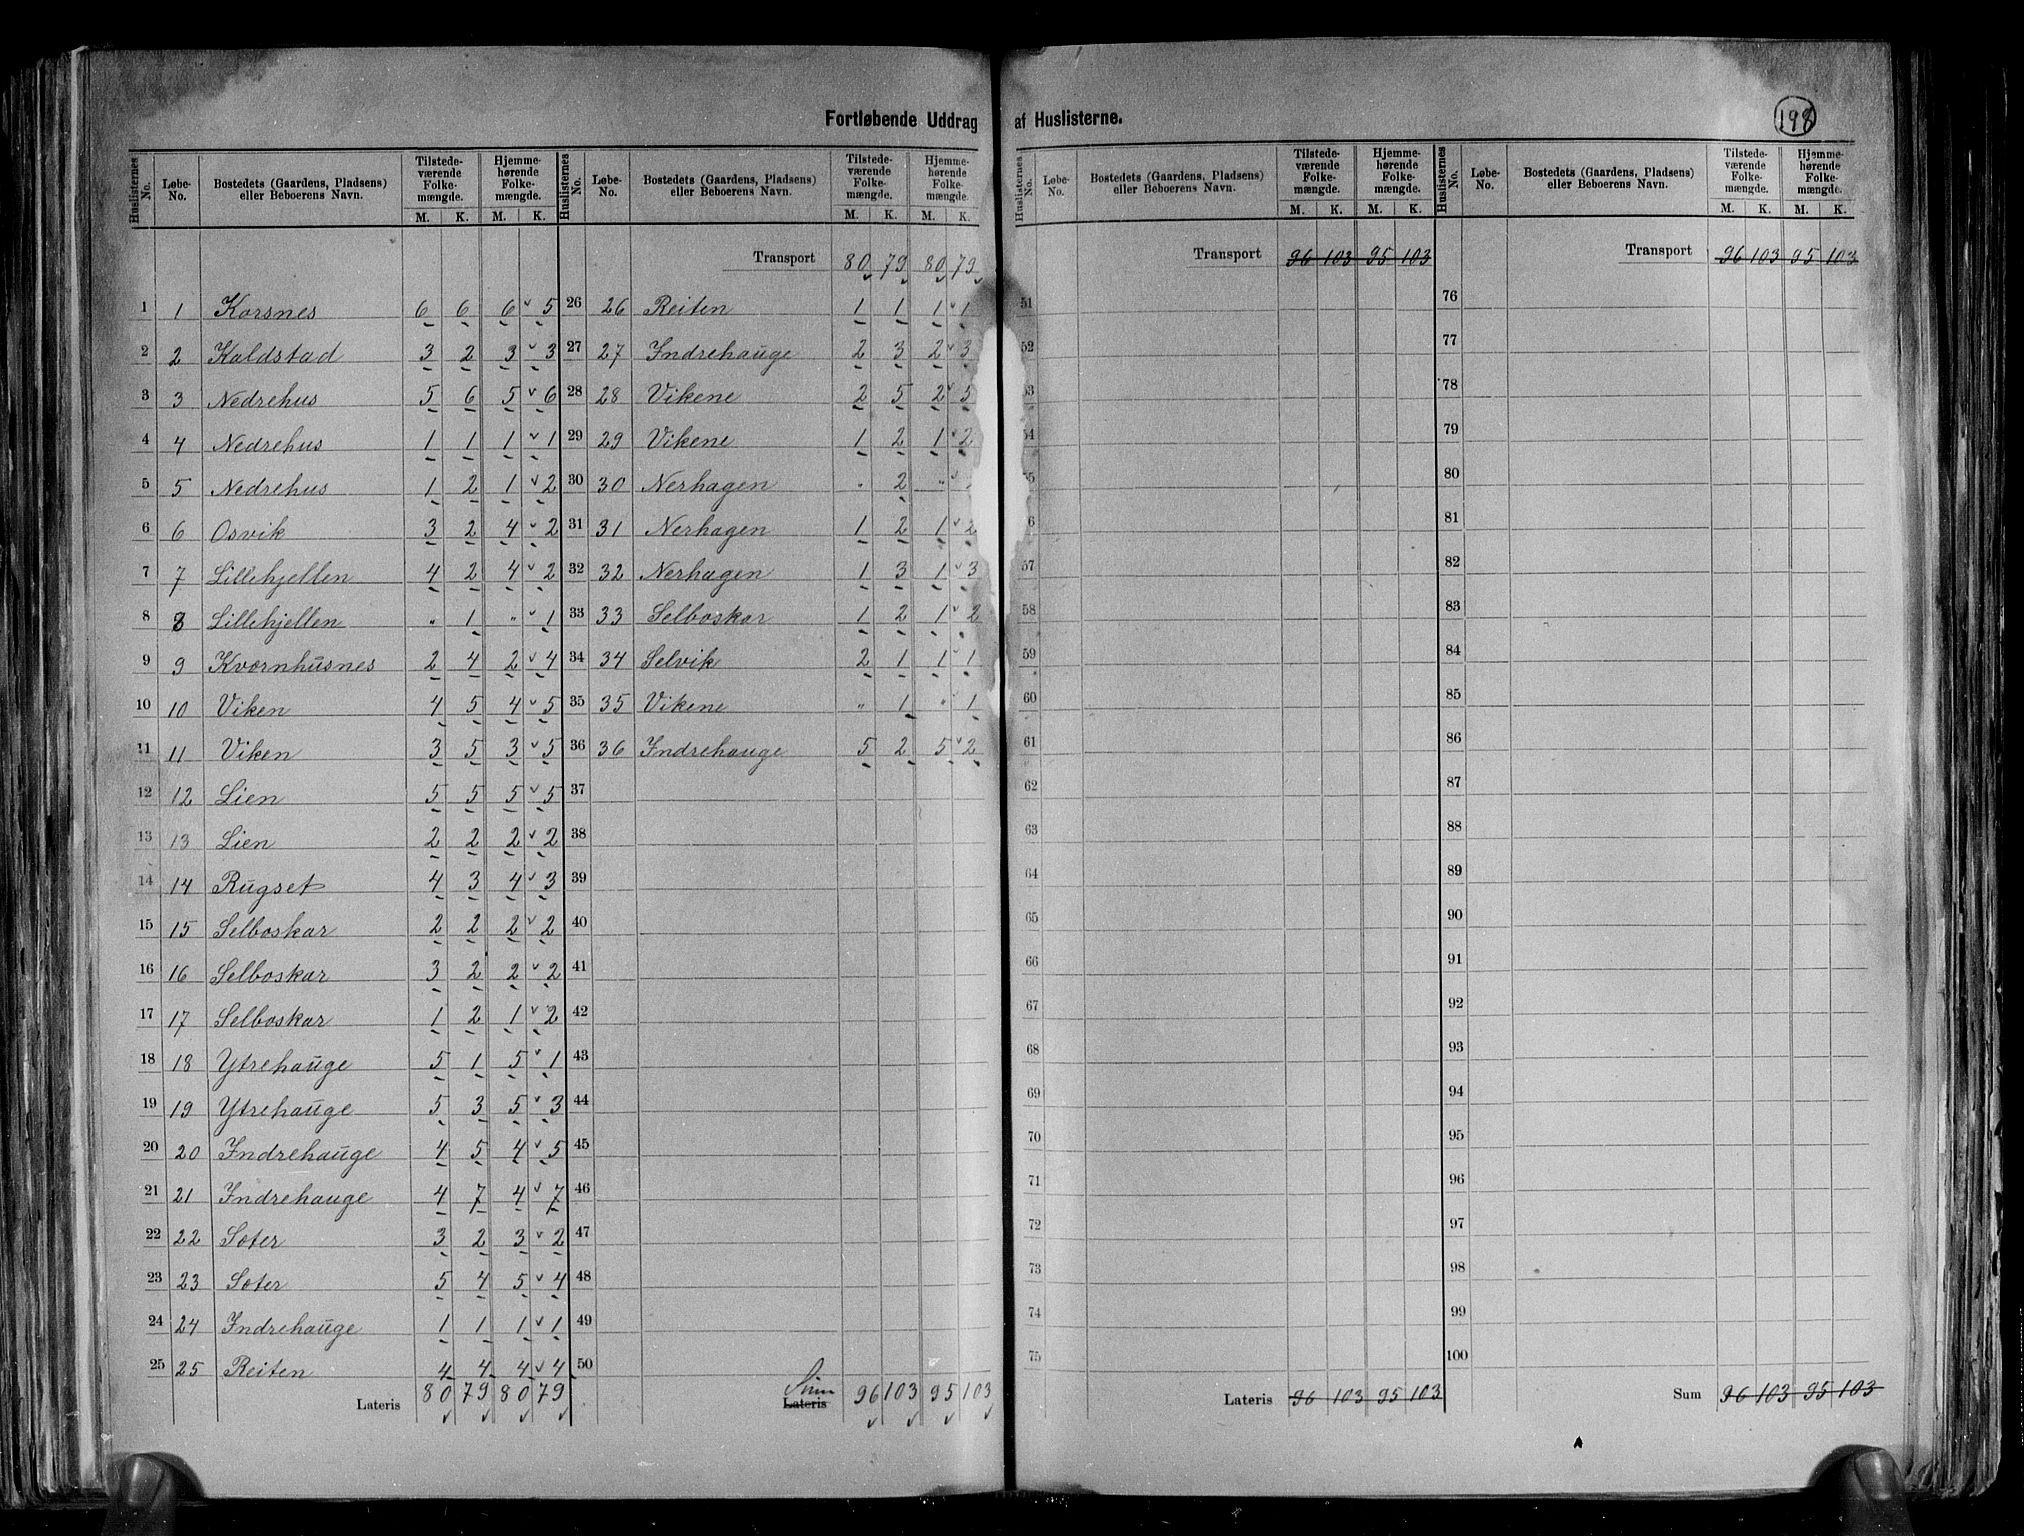 Fortløbende Uddrag af Huslisterne.
198
Huslisternes No. | Løbe-No. | Bostedets (Gaardens, Pladsens) eller Beboerens Navn. | Tilstedeværende Folkemængde. M. K. | Hjemmehørende Folkemængde. M. K.
1 1 Korsnes 6 6 6 5
2 2 Kaldstad 3 2 3 3
3 3 Nedrehus 5 6 5 6
4 4 Nedrehus 1 1 1 1
5 5 Nedrehus 1 2 1 2
6 6 Osvik 3 2 4 2
7 7 Lillehjellen 4 2 4 2
8 8 Lillehjellen " 1 " 1
9 9 Kvernhusnes 2 4 2 4
10 10 Viken 4 5 4 5
11 11 Viken 3 5 3 5
12 12 Lien 5 5 5 5
13 13 Lien 2 2 2 2
14 14 Rugset 4 3 4 3
15 15 Selboskar 2 2 2 2
16 16 Selboskar 3 2 2 2
17 17 Selboskar 1 2 1 2
18 18 Ytrehauge 5 1 5 1
19 19 Ytrehauge 5 3 5 3
20 20 Indrehauge 4 5 4 5
21 21 Indrehauge 4 7 4 7
22 22 Sæter 3 2 3 2
23 23 Sæter 5 4 5 4
24 24 Indrehauge 1 1 1 1
25 25 Reiten 4 4 4 4
Lateris 80 79 80 79
Huslisternes No. | Løbe-No. | Bostedets (Gaardens, Pladsens) eller Beboerens Navn. | Tilstedeværende Folkemængde. M. K. | Hjemmehørende Folkemængde. M. K.
Transport 80 79 80 79
26 26 Reiten 1 1 1 1
27 27 Indrehauge 2 3 2 3
28 28 Vikene 2 5 2 5
29 29 Vikene 1 2 1 2
30 30 Nerhagen " 2 "
31 31 Nerhagen 1 2 1 2
32 32 Nerhagen 1 3 1 3
33 33 Selboskar 1 2 1 2
34 34 Selvik 2 1 1 1
35 35 Vikene " 1 " 1
36 36 Indrehauge 5 2 5 2
37
38
39
40
41
42
43
44
45
46
47
48
49
50
Sum
Lateris 96 103 95 103
Huslisternes No. | Løbe-No. | Bostedets (Gaardens, Pladsens) eller Beboerens Navn. | Tilstedeværende Folkemængde. M. K. | Hjemmehørende Folkemængde. M. K.
Transport 96 103 95 103
51
52
53
54
55
6
57
58
59
60
61
62
63
64
65
66
67
68
69
70
71
72
73
74
75
Lateris 96 103 95 103
Huslisternes No. | Løbe-No. | Bostedets (Gaardens, Pladsens) eller Beboerens Navn. | Tilstedeværende Folkemængde. M. K. | Hjemmehørende Folkemængde. M. K.
Transport 96 103 95 103
76
77
78
79
80
81
82
83
84
85
86
87
88
89
90
91
92
93
94
95
96
97
98
99
100
Sum 96 103 95 103